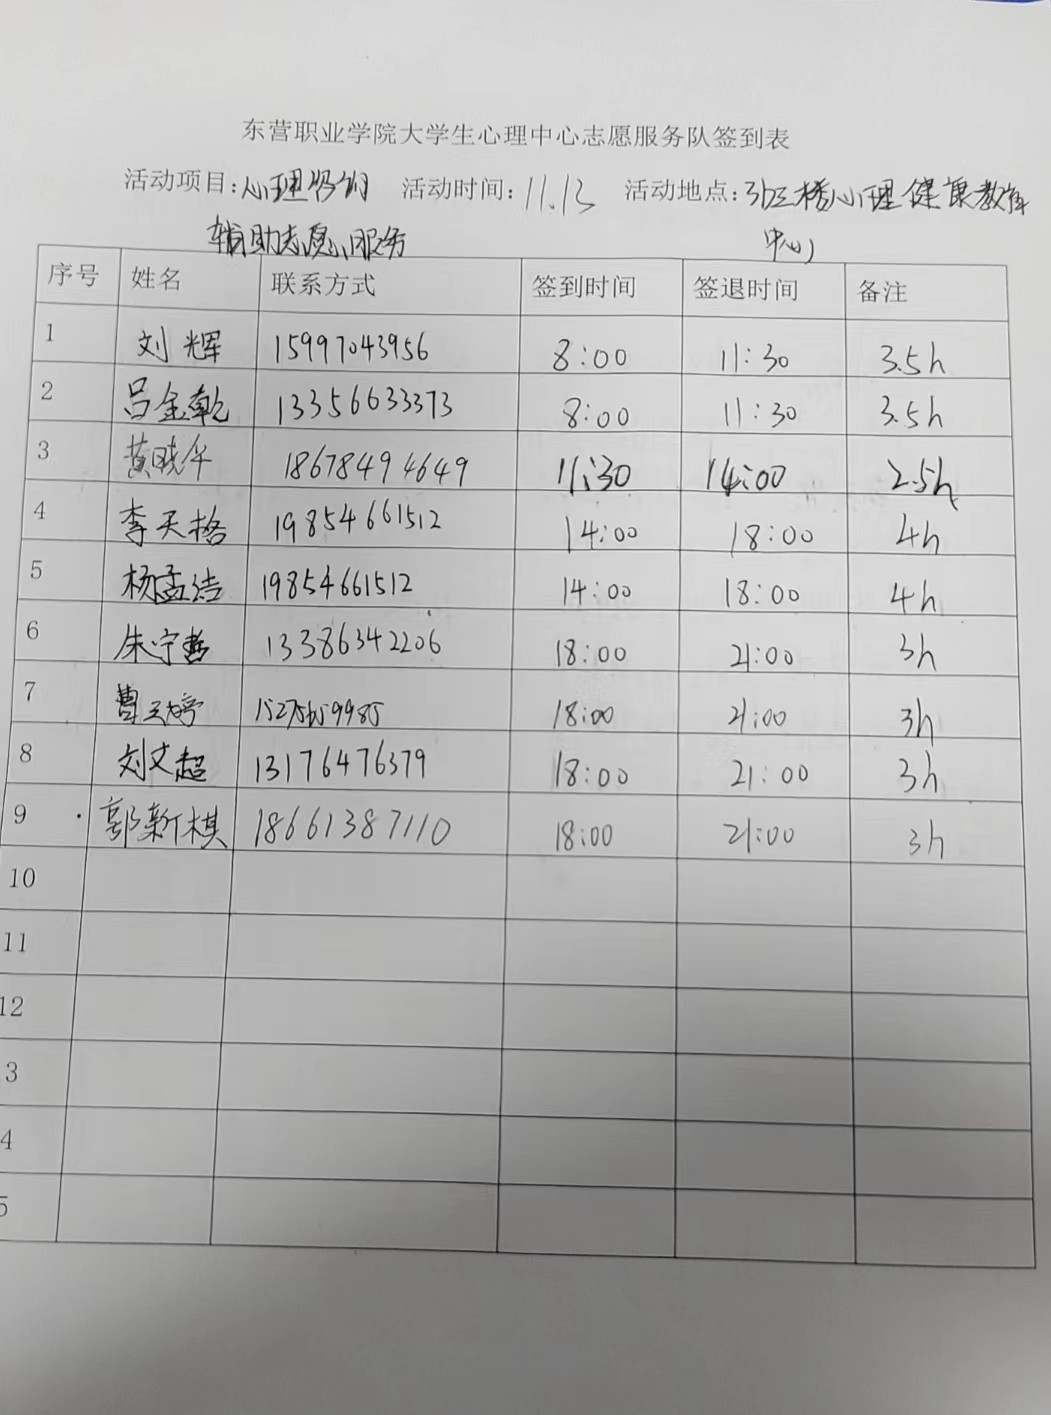 东营职业学院大学生心理中心志愿服务队签到表
活动项目:心理 活动时间:11.13 活动地点:3区三楼心理健康教育
辅助志愿服务 中心
序号 姓名 联系方式 签到时间 签退时间 备注
1 刘辉 15997043956 8:00 11:30 3.5h
2 吕金乾 13356633373 8:00 11:30 3.5h
3 黄晓华 18678494649 11:30 14:00 2.5h
4 李天格 19854661512 14:00 18:00 4h
5 杨孟洁 19854661512 14:00 18:00 4h
6 朱宁哲 13386342206 18:00 21:00 3h
7 曹玉婷 18:00 21:00 3h
8 刘文超 13176476379 18:00 21:00 3h
9 郭新棋 18661387110 18:00 21:00 3h
10
11
12
3
4
5